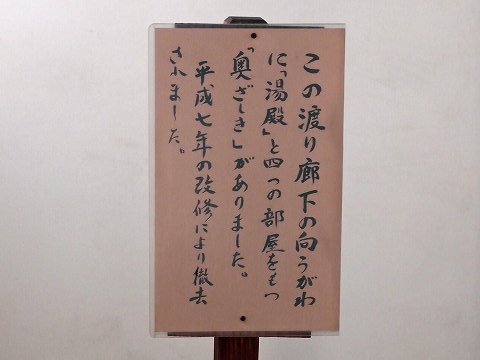 この渡り廊下の向うがわ
に「湯殿」と四つの部屋をもつ
「奥ざしき」がありました。
平成七年の改修により撤去
されました。